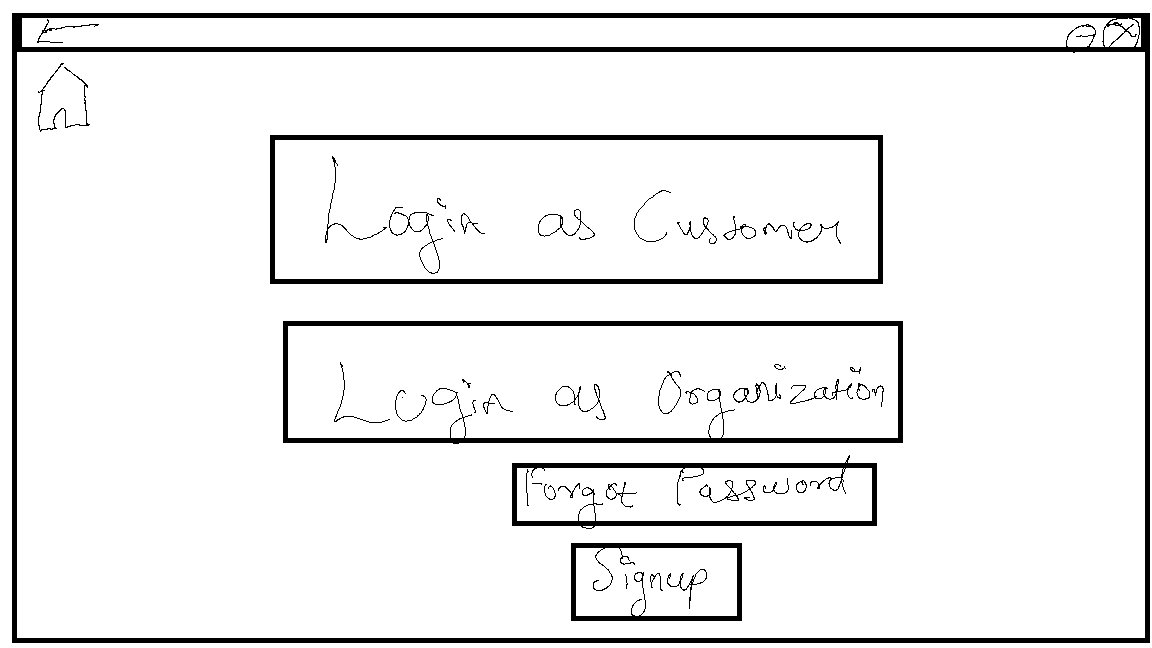 Login as Customer
Login as Organization
Forgot Password
Signup